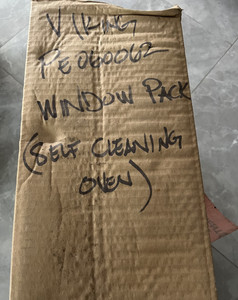 VIKING
PE060062
WINDOW PACK
(SELF CLEANING
OVEN)